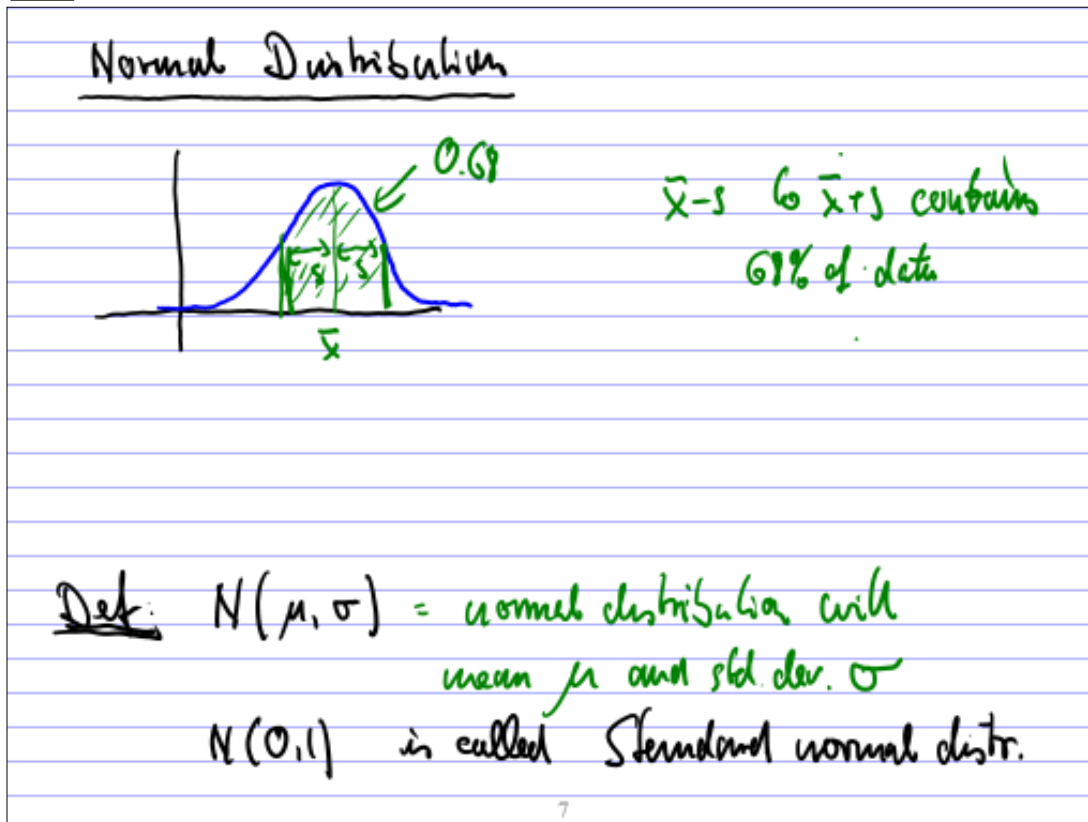 Normal Distribution
0.68
x̄-s to x̄+s contains
68% of data
s s
x̄
Def: N(μ, σ) = normal distribution with
mean μ and std. dev. σ
N(0,1) is called Standard normal distr.
7